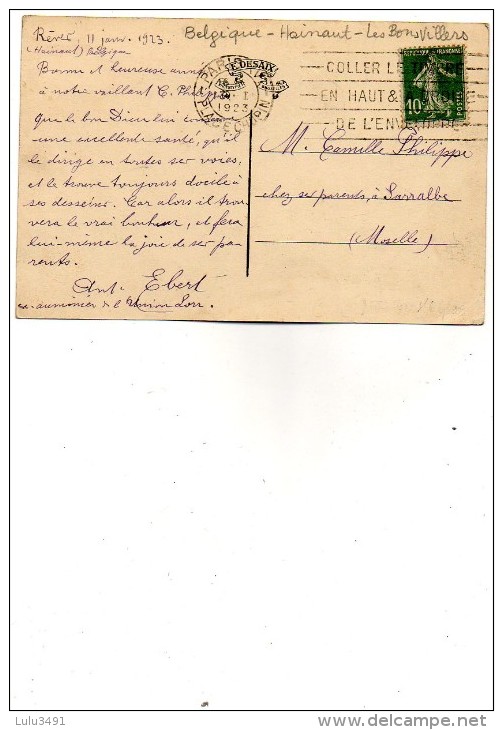 Rêves, 11 janv. 1923.
(Hainaut) Belgique
Belgique - Hainaut - Les Bons Villers
Bonne et heureuse année
à notre vaillant C. Philippe
que le bon Dieu lui conserve
une excellente santé, qu'il
le dirige en toutes ses voies,
et le trouve toujours docile à
ses desseins. Car alors il trou-
vera le vrai bonheur, et fera
lui-même la joie de ses pa-
rents.
Ant. Ebert
ex-aumônier de l'Union Lorr.
PARIS
R. DESAIX
1923
COLLER LE TIMBRE
EN HAUT &
DE L'ENVELOPPE
10
POSTES
M. Camille Philippe
chez ses parents, à Sarralbe
(Moselle)
Lulu3491
www.delcampe.net